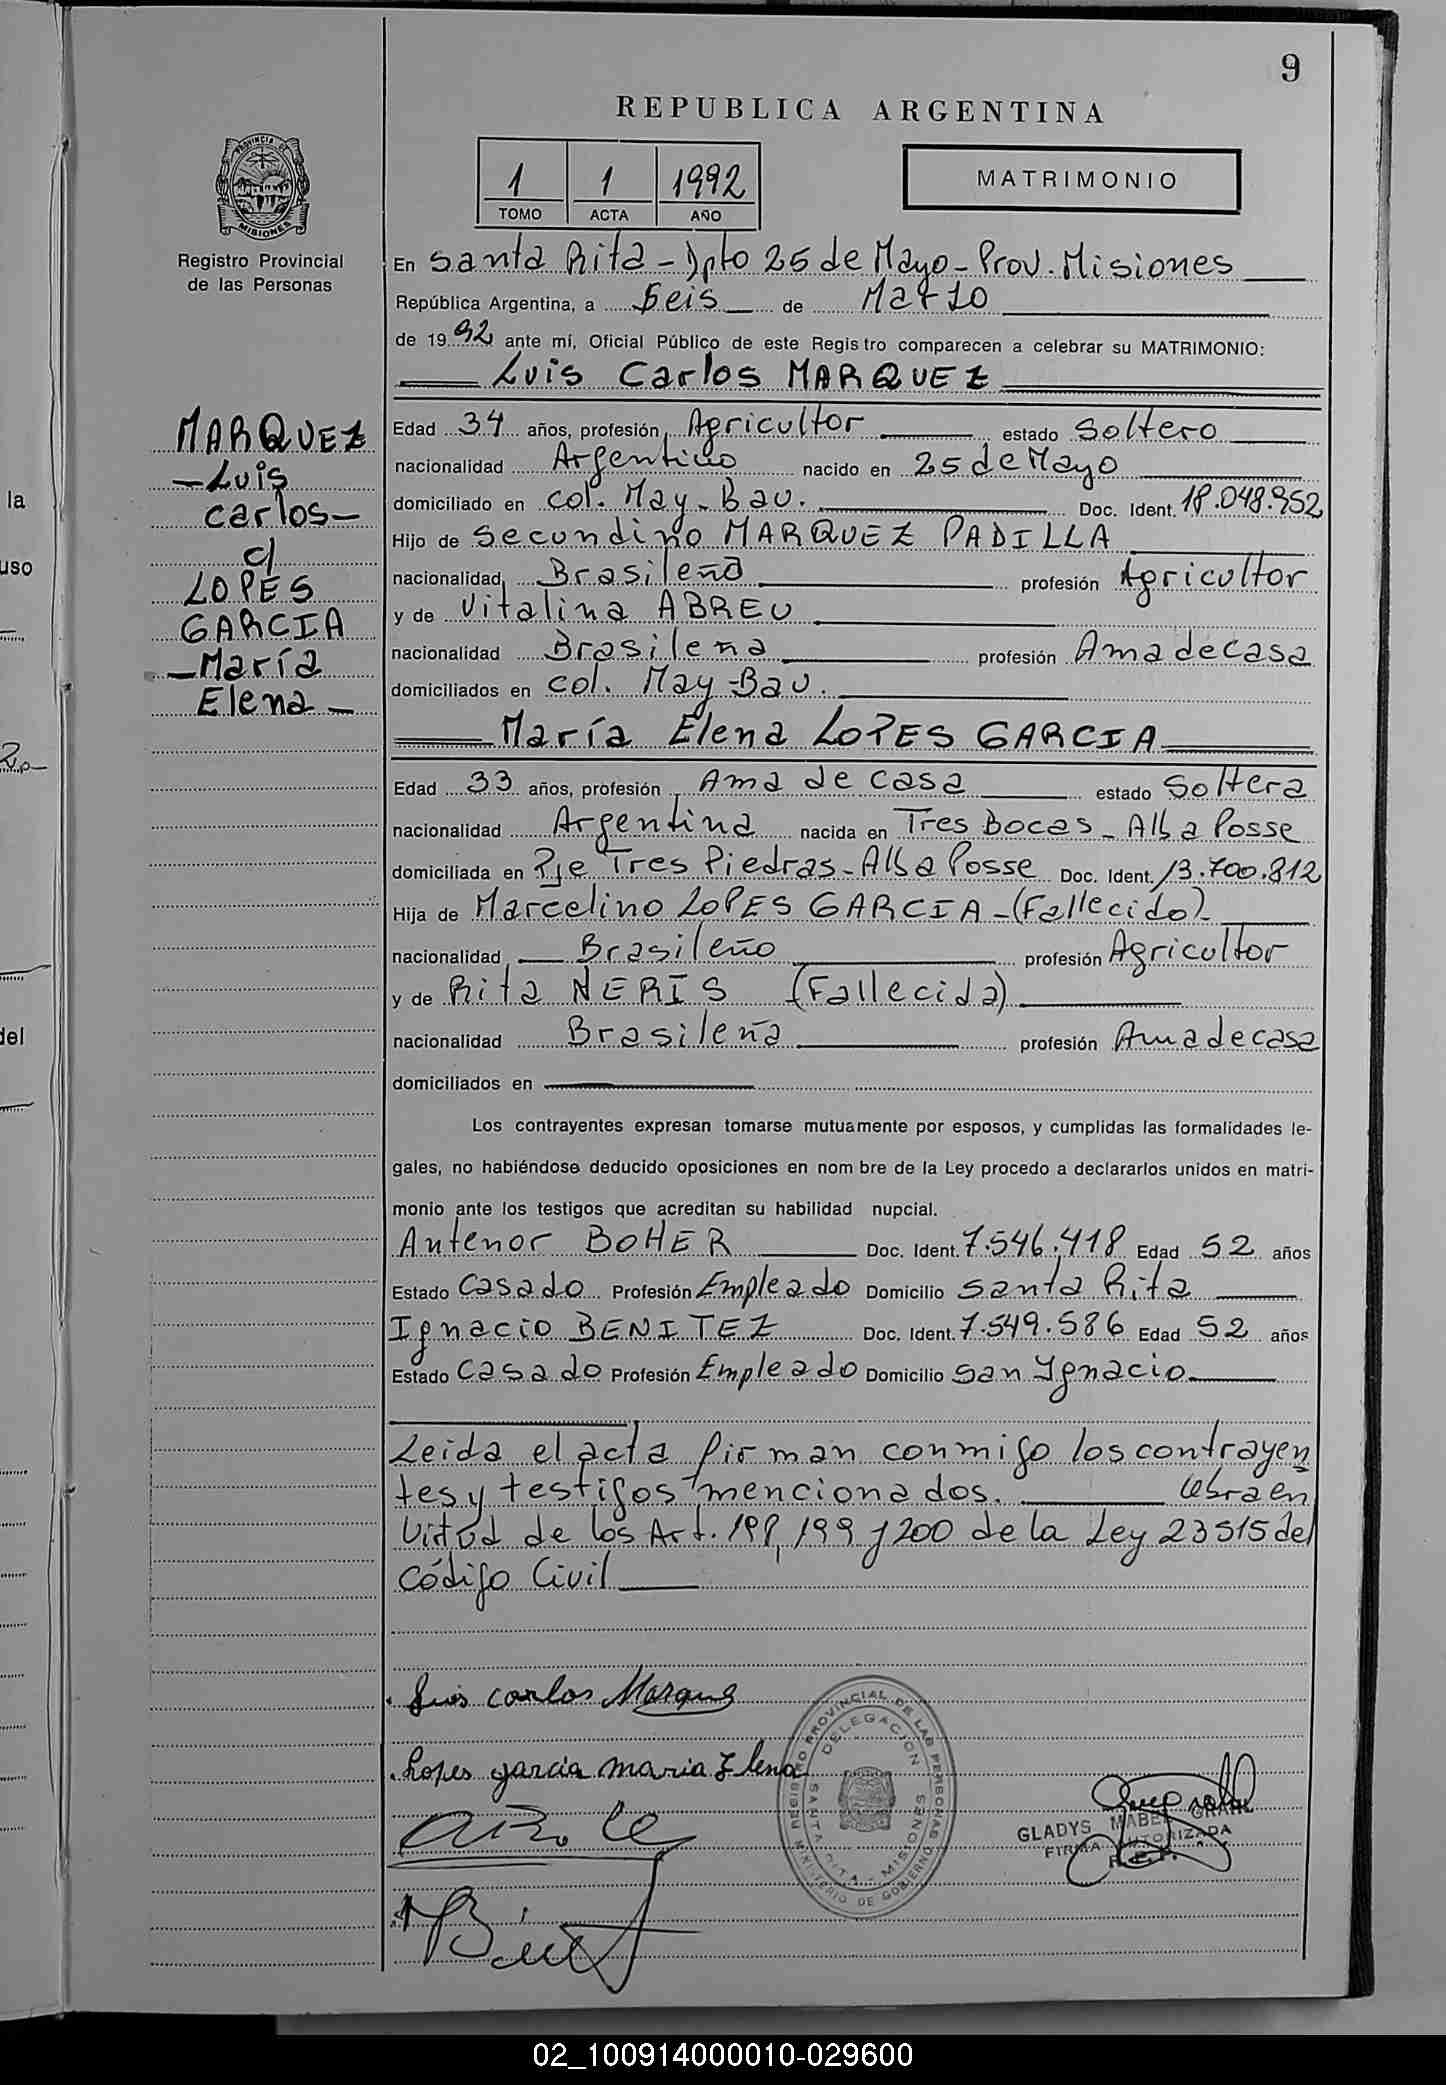 9
REPUBLICA ARGENTINA
1 1 1992
TOMO ACTA AÑO
MATRIMONIO
PROVINCIA DE
MISIONES
Registro Provincial
de las Personas
En Santa Rita - Dpto 25 de Mayo - Prov. Misiones
República Argentina, a Seis de Marzo
de 1992 ante mí, Oficial Público de este Registro comparecen a celebrar su MATRIMONIO:
Luis Carlos MARQUEZ
MARQUEZ
- Luis
Carlos -
c/
LOPES
GARCIA
- María
Elena -
Edad 34 años, profesión Agricultor estado Soltero
nacionalidad Argentino nacido en 25 de Mayo
domiciliado en col. May-Bau. Doc. Ident. 18.048.952
Hijo de Secundino MARQUEZ PADILLA
nacionalidad Brasileño profesión Agricultor
y de Vitalina ABREU
nacionalidad Brasileña profesión Ama de casa
domiciliados en col. May-Bau.
María Elena LOPES GARCIA
Edad 33 años, profesión Ama de casa estado Soltera
nacionalidad Argentina nacida en Tres Bocas - Alba Posse
domiciliada en Pje Tres Piedras - Alba Posse Doc. Ident. 13.700.812
Hija de Marcelino LOPES GARCIA - (Fallecido) -
nacionalidad Brasileño profesión Agricultor
y de Rita NERIS (Fallecida)
nacionalidad Brasileña profesión Ama de casa
domiciliados en
Los contrayentes expresan tomarse mutuamente por esposos, y cumplidas las formalidades le-
gales, no habiéndose deducido oposiciones en nombre de la Ley procedo a declararlos unidos en matri-
monio ante los testigos que acreditan su habilidad nupcial.
Antenor BOHER Doc. Ident. 7.546.418 Edad 52 años
Estado Casado Profesión Empleado Domicilio Santa Rita
Ignacio BENITEZ Doc. Ident. 7.549.586 Edad 52 años
Estado Casado Profesión Empleado Domicilio San Ygnacio
Leida el acta firman conmigo los contrayen
tes y testigos mencionados. Labra en
Virtud de los Art. 198, 199 y 200 de la Ley 23515 del
Código Civil
Luis Carlos Marques
Lopes garcia maria Elena
REGISTRO PROVINCIAL DE LAS PERSONAS
DELEGACION
SANTA RITA - MISIONES
MINISTERIO DE GOBIERNO
GLADYS MABEL
FIRMA AUTORIZADA
R. P. P.
la
uso
del
02_100914000010-029600